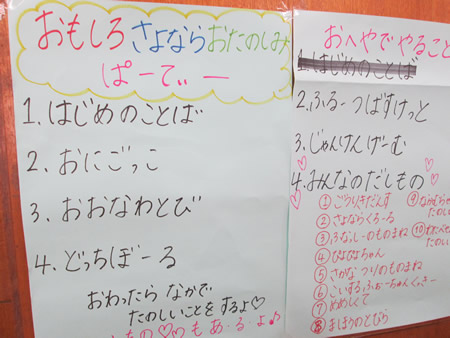 おもしろ さよなら おたのしみ
ぱーてぃー
1. はじめのことば
2. おにごっこ
3. おおなわとび
4. どっちぼーる
おわったら なかで
たのしいことをするよ♡
もあ・るよ♪
おへやでやること
1. はじめのことば
2. ふるーつばすけっと
3. じゃんけんげーむ
4. みんなのだしもの
① ごうりきだんす
② さよならくろーる
③ ふなっしーのものまね
④ ぴよぴよちゃん
⑤ さかなつりのものまね
⑥ こいするふぉーちゅんくっきー
⑦ めめしくて
⑧ まほうのとびら
⑨
たのしい
⑩
たのしい